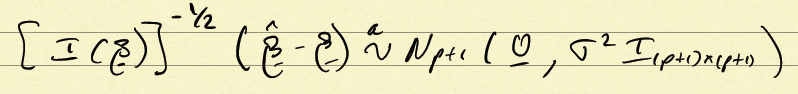 [I(β)]^{-1/2} (β̂ - β) ᵃ∼ N_{p+1} (0, σ² I_{(p+1)×(p+1)})